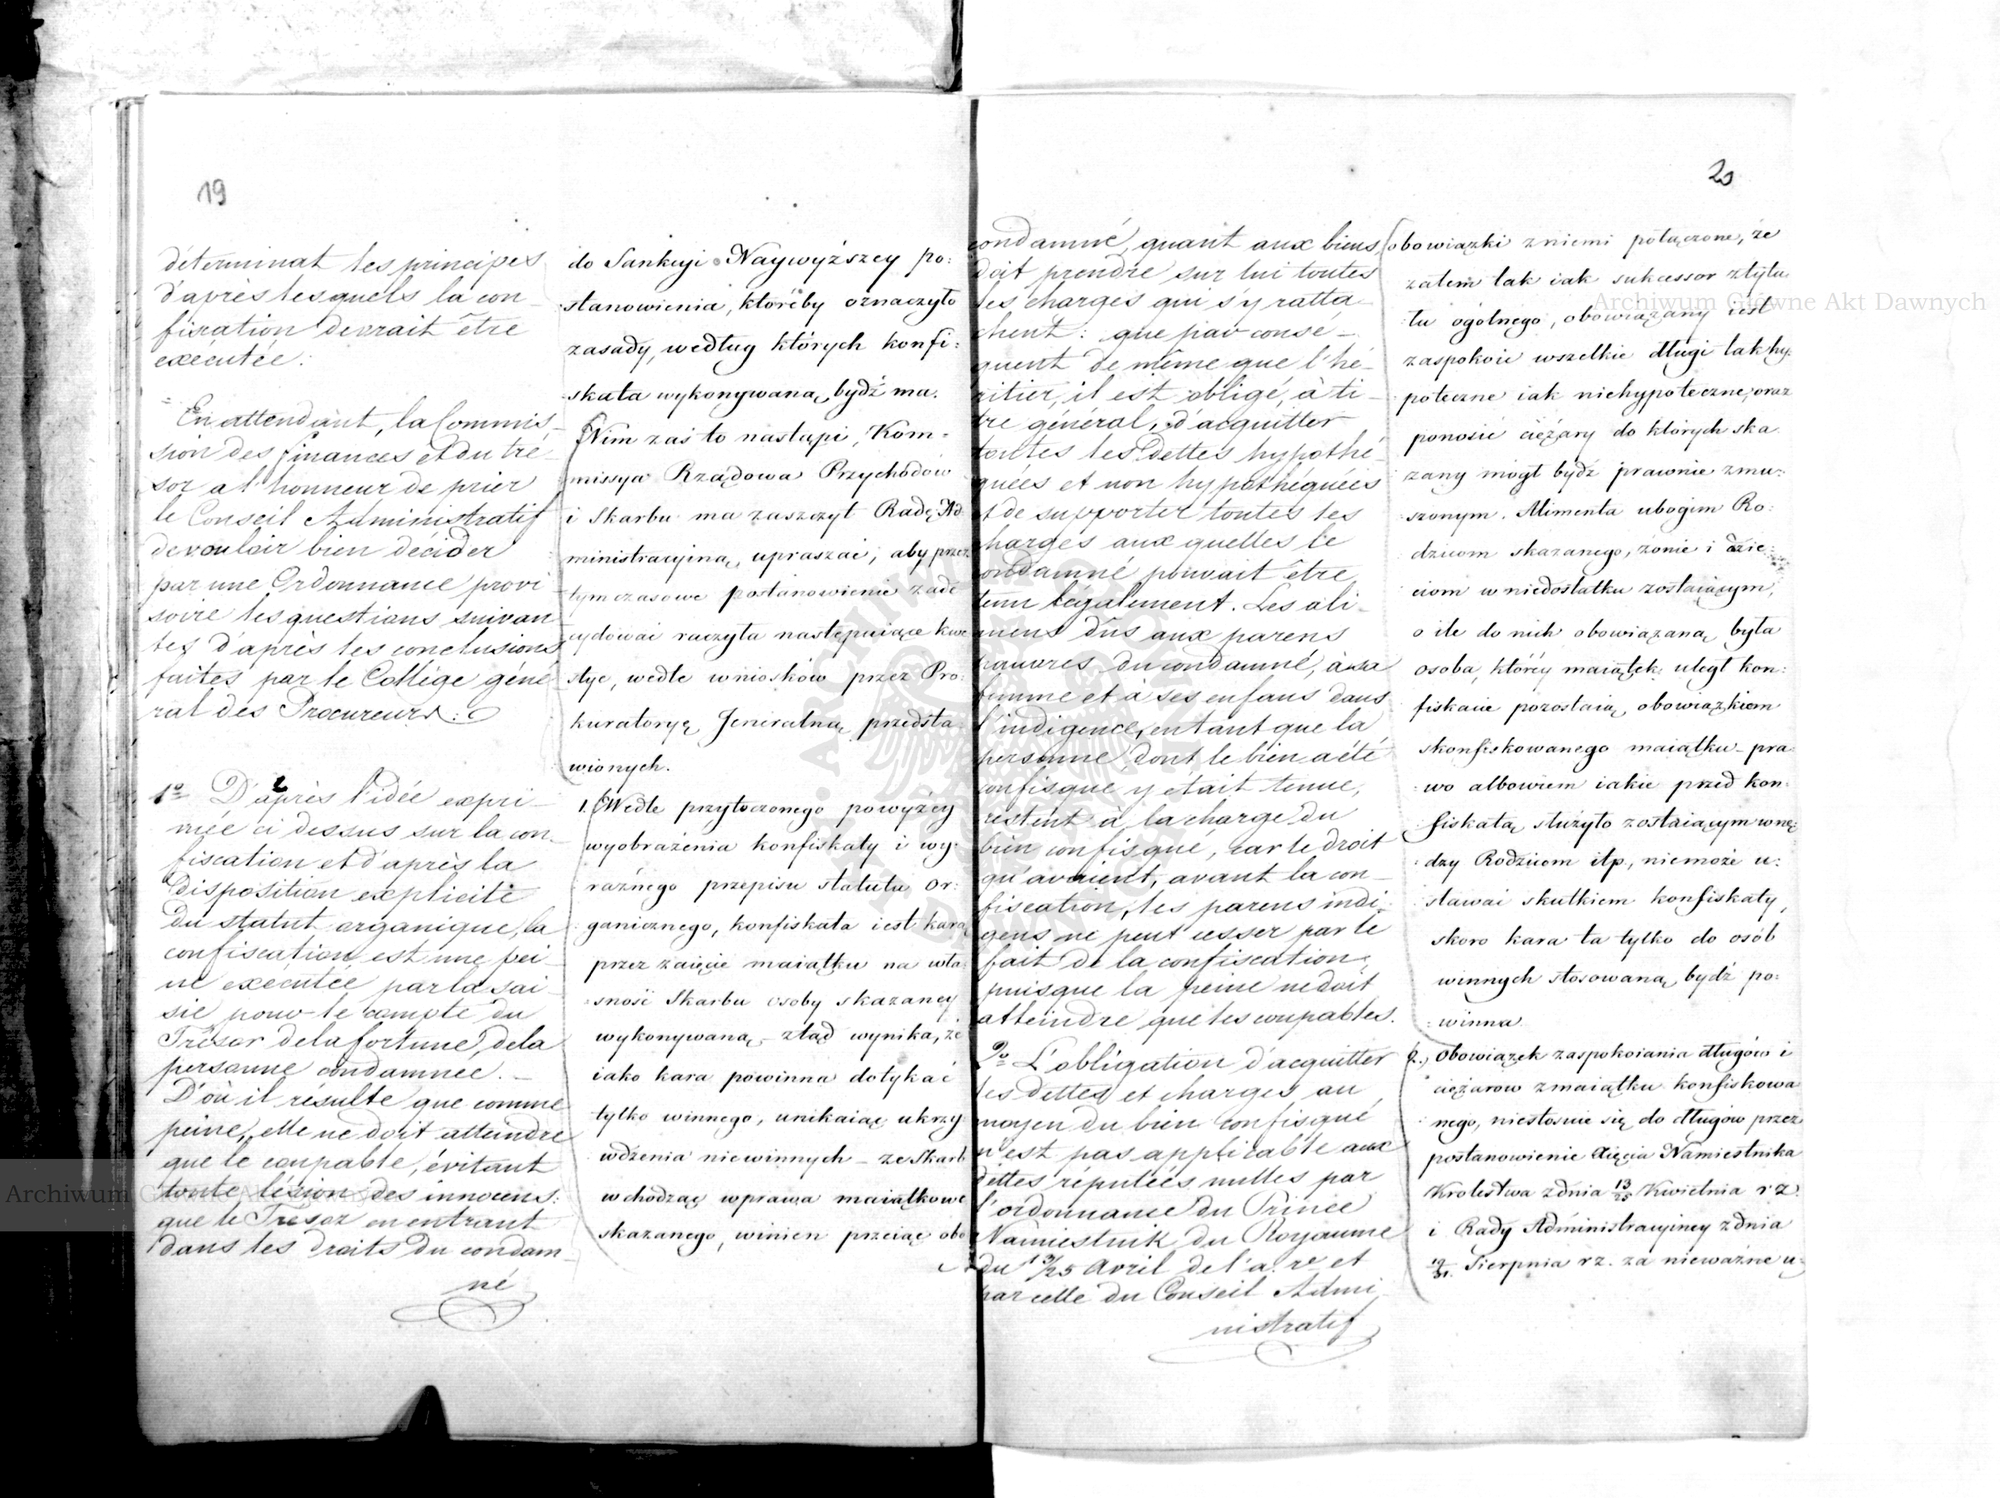 19
déterminat les principes
d'après lesquels la con-
fiscation devrait être
executée.
En attendant, la Commis-
sion des finances et du tré-
sor a l'honneur de prier
le Conseil Administratif
de vouloir bien décider
par une Ordonnance provi
soire les questions suivan
tes d'après les conclusions
faites par le Collége géné
ral des Procureurs:
1º D'après l'idée expri-
mée ci dessus sur la con-
fiscation et d'après la
disposition explicite
du statut organique, la
confiscation est une pei-
ne exécutée par la sai-
sie pour le compte du
Trésor de la fortune, de la
personne condamnée. –
D'où il résulte que comme
peine, elle ne doit atteindre
que le coupable, évitant
toute lésion des innocens:
que le Trésor en entrant
dans les droits du condam-
né
do Sankcyi Naywyższey po:
stanowienia, któreby oznaczyło
zasady, według których konfi:
skata wykonywaną bydź ma.
Nim zaś to nastąpi, Kom-
missya Rządowa Przychodów
i Skarbu ma zaszczyt Radę Ad-
ministracyiną, upraszać, aby przez
tymczasowe postanowienie zade
cydować raczyła następuiące kwe
stye, wedle wniosków przez Pro:
kuratoryę Jeneralną przedsta-
wionych.
1. Wedle przytoczonego powyżéy
wyobrażenia konfiskaty i wy:
raźnego przepisu statutu or:
ganicznego, konfiskata iest karą
przez zaięcie maiątku na wła-
sność Skarbu osoby skazaney
wykonywaną, ztąd wynika, że
iako kara powinna dotykać
tylko winnego, unikaiąc ukrzy
wdzenia niewinnych – że Skarb
wchodząc w prawa maiątkowe
skazanego, winien przeiąć obo
20
condamné, quant aux biens,
doit prendre sur lui toutes
les charges qui s'y ratta-
chent: que par consé-
quent de même que l'hé-
ritier, il est obligé, à ti-
tre général, d'acquitter
toutes les dettes hypothé-
quées et non hypothéquées
et de supporter toutes les
charges aux quelles le
condamné pouvait être
tenu légalement. Les ali-
mens dûs aux parens
pauvres du condamné, à sa
femme et à ses enfans dans
l'indigence, en tant que la
personne dont le bien a été
confisqué y était tenue,
restent à la charge du
bien confisqué, car le droit
qu'avaient, avant la con-
fiscation, les parens indi-
gens ne peut cesser par le
fait de la confiscation,
puisque la peine ne doit
atteindre que les coupables.
2º L'obligation d'acquitter
les dettes et charges au
moyen du bien confisqué
n'est pas applicable aux
dettes réputées nulles par
l'ordonnance du Prince
Namiestnik du Royaume
du 13/25 Avril de l'a. c. et
par celle du Conseil Admi-
nistratif
obowiązki z niemi połączone, że
zatem tak iak sukcessor z tytu
łu ogólnego, obowiązany iest
zaspokoić wszelkie długi tak hy-
poteczne iak niehypoteczne, oraz
ponosić ciężary do których ska
zany mógł bydź prawnie zmu-
szonym. Alimenta ubogim Ro:
dzicom skazanego, żonie i dzie:
ciom w niedostatku zostaiącym,
o ile do nich obowiązaną była
osoba, któréy maiątek uległ kon:
fiskacie pozostaią, obowiązkiem
skonfiskowanego maiątku – pra
wo albowiem iakie przed kon-
fiskatą służyło zostaiącym w nę-
dzy Rodzicom itp., nie może u:
stawać skutkiem konfiskaty,
skoro kara ta tylko do osób
winnych stosowaną bydź po:
winna.
2., Obowiązek zaspokoiania długów i
ciężarów z maiątku konfiskowa
nego, niestosuie się do długów przez
postanowienie Xięcia Namiestnika
Królestwa z dnia 13/25 Kwietnia r z.
i Rady Administracyiney z dnia
19/31. Sierpnia r z. za nieważne u:
Archiwum Główne Akt Dawnych
Archiwum Główne Akt Dawnych